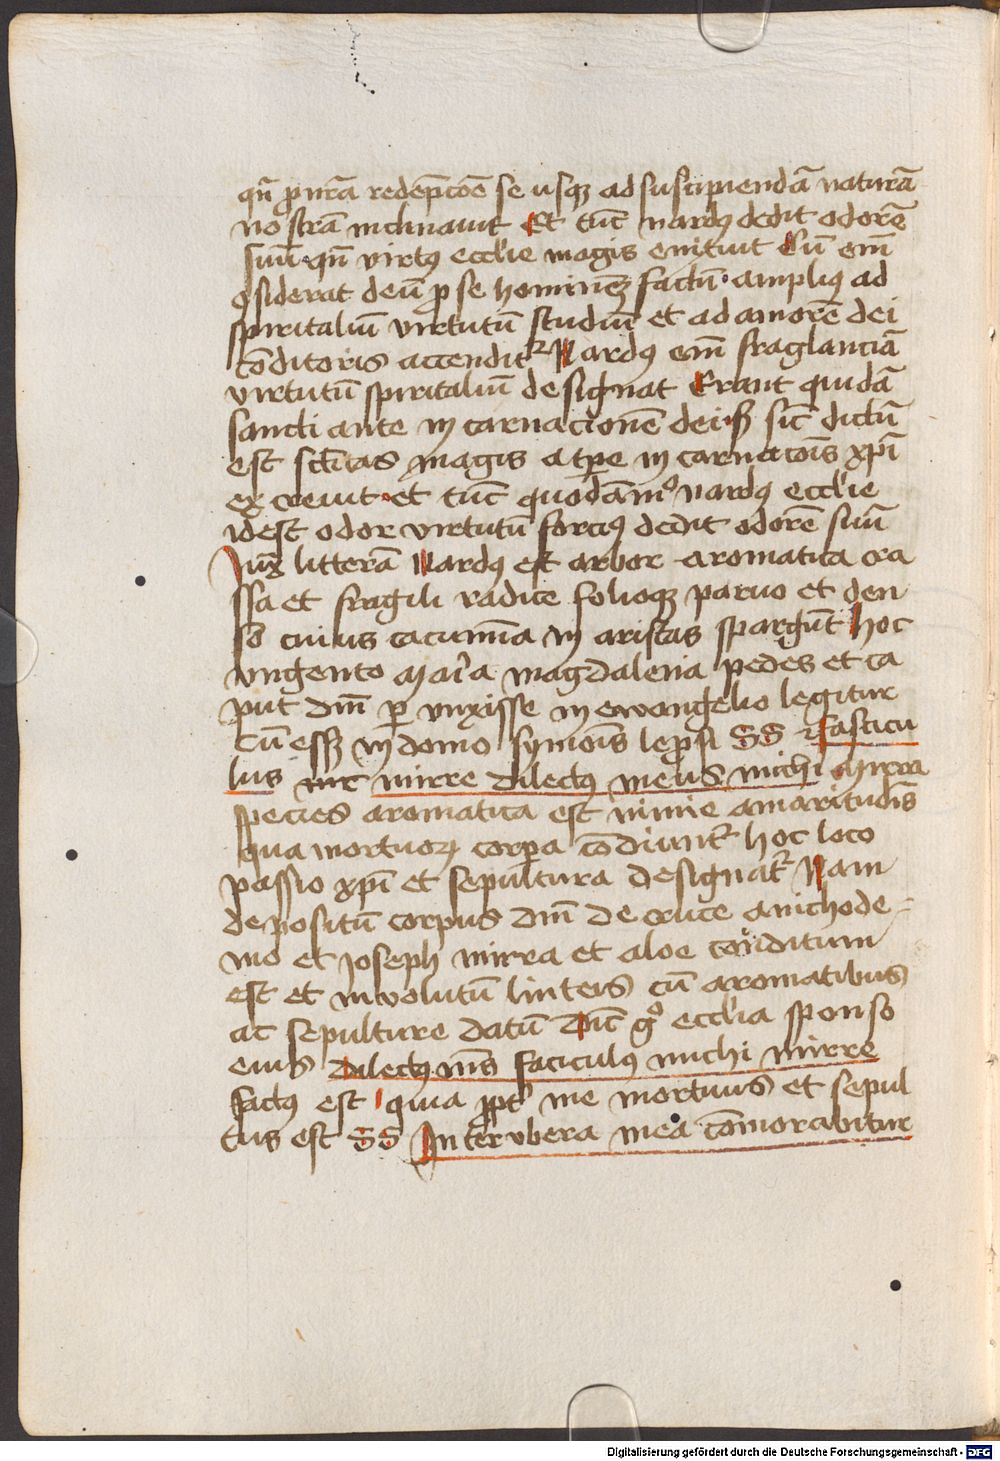 qn̄ p nrā redēpcōē se usqꝫ ad suscipiendā naturā
nostrā inclinauit Et tūc nardꝰ dedit odorē
suū qn̄ virtꝰ ecclīe magis enituit Cū em̄
ꝯsiderat deū p se hominē factū amplius ad
spiritaliū virtutū studiū et ad amorē dei
cōditoris accenditᷣ Nardꝰ em̄ fraglanciā
virtutū spiritaliū designat Erant quidā
sancti ante incarnacionē dei sꝫ sic̄ dictū
est sc̄titas magis a tp̄re incarnacōis xp̄i
excreuit et tūc quodāmᵒ nardꝰ ecclīe
idest odor virtutū forciꝰ dedit odorē suū
Iuxͣ litterā Nardꝰ est arbor aromatica cra
ssa et fragili radice folioqꝫ paruo et den
so cuius cacumīa in aristas spargūt Hoc
vngento Maīa magdalena pedes et ca
put dn̄i p vnxisse in ewangelio legitur
Cū essꝫ in domo symōis leprosi SS Fascicu
lus mirre dilectꝰ meus michi Mirra
species aromatica est nimie amaritudīs
qua mortuoꝝ corpa cōdiuntᷣ hoc loco
passio xp̄i et sepultura designatᷣ Nam
depositū corpus dn̄i de cruce a nichode
mo et Joseph mirra et aloe conditum
est et inuolutū linteis cū aromatibus
ac sepulture datū Dic̄ gͦ ecclīa sponso
eius Dilectꝰ mꝰs faciculꝰ michi mirre
factꝰ est quia ppt̄ me mortuus et sepul
tus est SS Inter vbera mea cōmorabitur
Digitalisierung gefördert durch die Deutsche Forschungsgemeinschaft - DFG